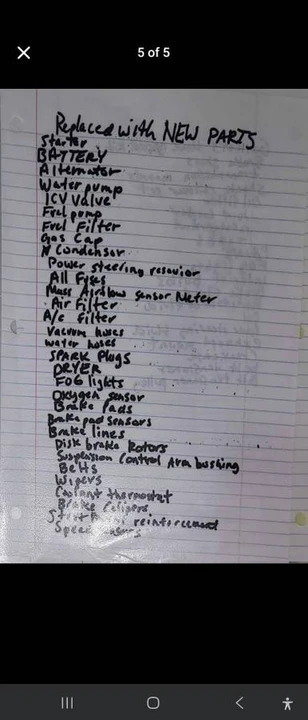 5 of 5
Replaced with NEW PARTS
Starter
BATTERY
Alternator
Water pump
ICV Valve
Fuel pump
Fuel Filter
Gas Cap
Condensor
Power steering resovior
All Fuses
Mass Airflow sensor Meter
Air Filter
A/c filter
Vacuum hoses
water hoses
SPARK Plugs
DRYER
FOG lights
Oxygen sensor
Brake Pads
Brake pad sensors
Brake lines
Disk brake Rotors
Suspension Control Arm bushing
Belts
Wipers
Coolant thermostat
Brake Calipers
reinforcement